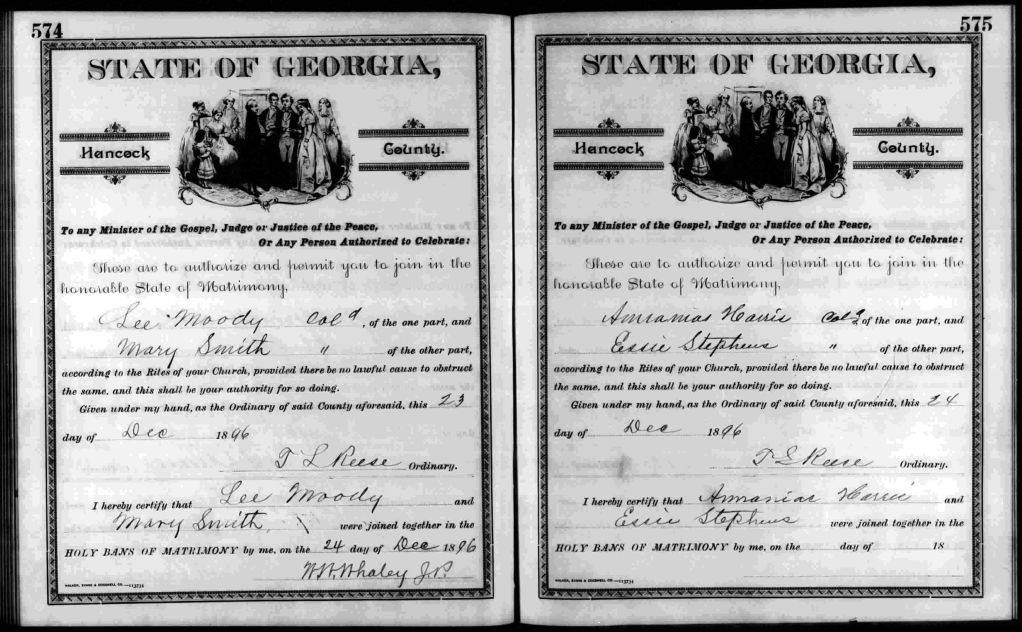 574
STATE OF GEORGIA,
Hancock County.
To any Minister of the Gospel, Judge or Justice of the Peace,
Or Any Person Authorized to Celebrate:
These are to authorize and permit you to join in the
honorable State of Matrimony,
Lee Moody Col'd, of the one part, and
Mary Smith " of the other part,
according to the Rites of your Church, provided there be no lawful cause to obstruct
the same, and this shall be your authority for so doing.
Given under my hand, as the Ordinary of said County aforesaid, this 23
day of Dec 1896
T L Reese Ordinary.
I hereby certify that Lee Moody and
Mary Smith were joined together in the
HOLY BANS OF MATRIMONY by me, on the 24 day of Dec 1896
W.W. Whaley J.P.
WALKER, EVANS & COGSWELL CO.—113734
575
STATE OF GEORGIA,
Hancock County.
To any Minister of the Gospel, Judge or Justice of the Peace,
Or Any Person Authorized to Celebrate:
These are to authorize and permit you to join in the
honorable State of Matrimony,
Harris Col'd of the one part, and
Essie Stephens " of the other part,
according to the Rites of your Church, provided there be no lawful cause to obstruct
the same, and this shall be your authority for so doing.
Given under my hand, as the Ordinary of said County aforesaid, this 24
day of Dec 1896
T L Reese Ordinary.
I hereby certify that Harris and
Essie Stephens were joined together in the
HOLY BANS OF MATRIMONY by me, on the day of 18
WALKER, EVANS & COGSWELL CO.—113734